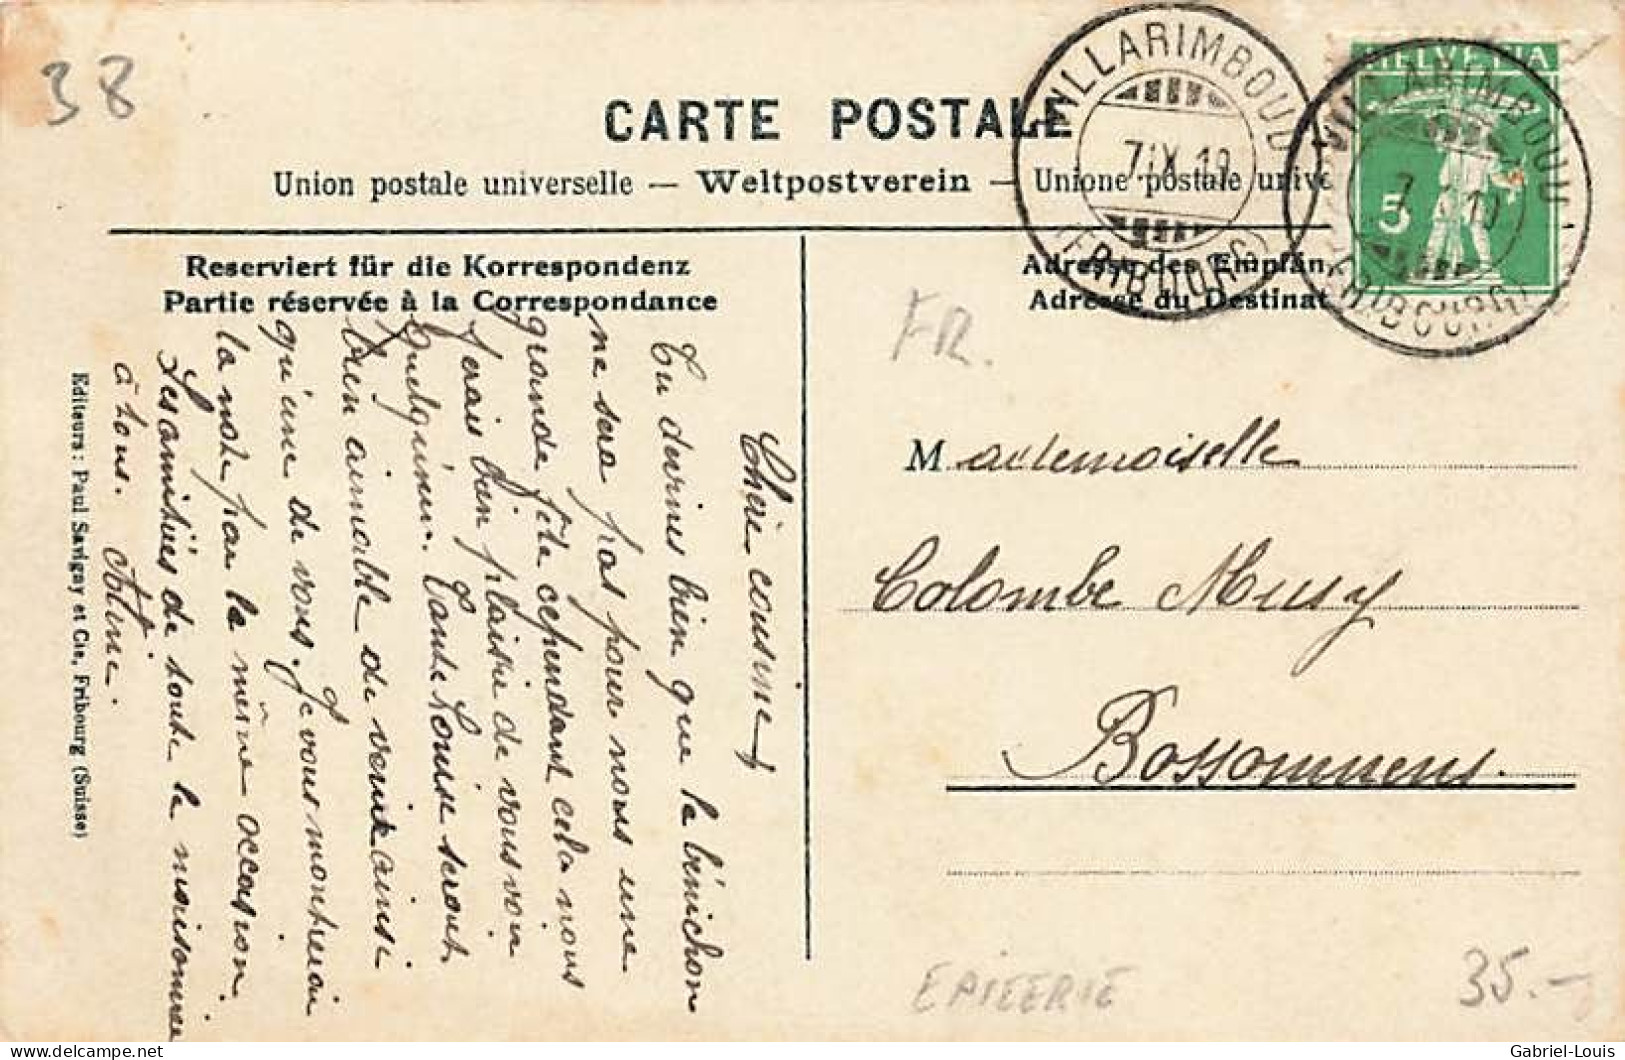 38
CARTE POSTALE
Union postale universelle — Weltpostverein — Unione postale unive
VILLARIMBOUD
7.IX.19
(FRIBOURG)
HELVETIA
5
VILLARIMBOUD
(FRIBOURG)
Reserviert für die Korrespondenz
Partie réservée à la Correspondance
Adresse des Empfän
Adresse du Destinat
FR.
Chère cousine,
Tu devines bien que la bénichon
ne sera pas pour nous une
grande fête cependant cela nous
ferais bien plaisir de vous voir
quelqu'une. Tante Louise seront
bien aimable de venir ainsi
qu'une de vous. Je vous montrerai
la mode par la même occasion.
Les amitiés de toute la maisonnée
à tous.
Editeurs: Paul Savigny et Cie, Fribourg (Suisse)
Mademoiselle
Colombe Musy
Bossonnens.
EPICERIE
35.-
Gabriel-Louis